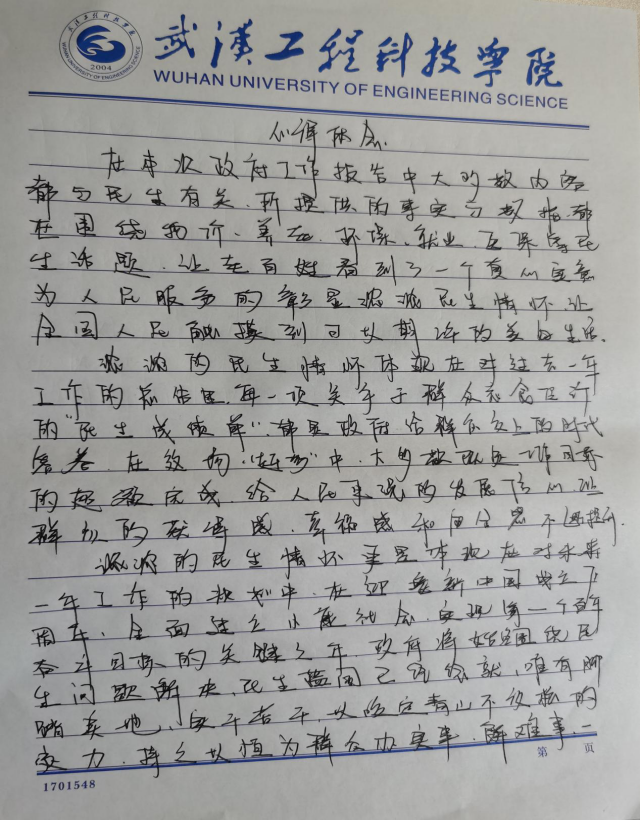 2004
WUHAN UNIVERSITY OF ENGINEERING SCIENCE
武漢工程科技學院
WUHAN UNIVERSITY OF ENGINEERING SCIENCE
心得体会
在本次政府工作报告中大多数内容
都与民生有关.所提供的事实与数据,都
在围绕物价、养老、环保、就业、医保等民
生话题.让老百姓看到了一个真心实意
为人民服务的
浓浓民生情怀让
全国人民触摸到可以期许的美好生活.
浓浓的民生情怀体现在对过去一年
工作的总结里.每一项关乎于群众衣食住行
的"民生成绩单".都是政府给群众交上的时代
答卷.在这份
中.大多数
工作目标
的超额完成.给人民未来的发展信心.让
群众的获得感.幸福感和
浓浓的民生情怀更是体现在对未来
一年工作的规划中.在迎来新中国成立70
周年、全面建立小康社会.实现第一个百年
奋斗目标的关键之年.政府将始终围绕民
生问题解决.民生
唯有脚
踏实地、实干苦干.以咬定青山不放松的
毅力.持之以恒为群众办实事.解难事.一
1701548
第 页